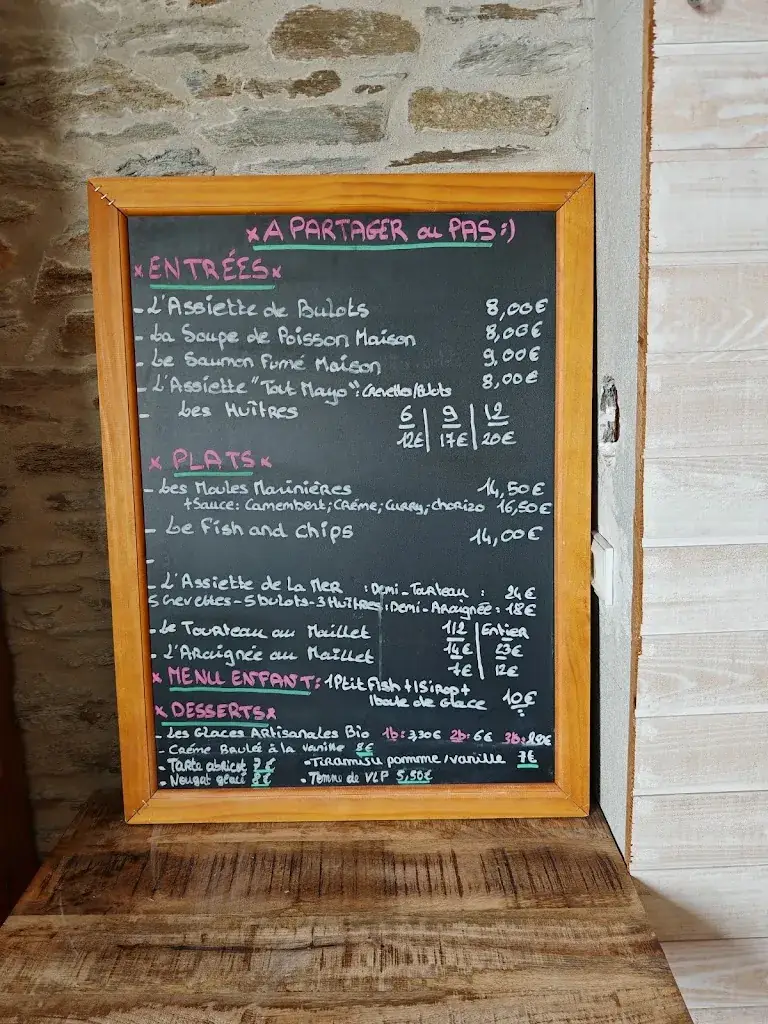 x A PARTAGER ou PAS :)
x ENTRÉES x
- L'Assiette de Bulots 8,00€
- La Soupe de Poisson Maison 8,00€
- Le Saumon Fumé Maison 9,00€
- L'Assiette "Tout Mayo": Crevettes/Bulots 8,00€
- Les Huîtres 6 | 9 | 12
12€ | 17€ | 20€
x PLATS x
- Les Moules Marinières 14,50€
+Sauce: Camembert, Crème, Curry, chorizo 16,50€
- Le Fish and chips 14,00€
-
- L'Assiette de La Mer : Demi-Tourteau : 24€
5 Crevettes - 5 bulots - 3 Huîtres : Demi-Araignée : 18€
- Le Tourteau au Maillet 1/2 | Entier
14€ | 23€
- L'Araignée au Maillet 7€ | 12€
x MENU ENFANT: 1 Ptit Fish + 1 Sirop +
1 boule de Glace 10€
x DESSERTS x
- Les Glaces Artisanales Bio 1b: 3,30€ 2b: 6€ 3b:
- Crème Brulée à la vanille 8€
- Tarte abricot 7€ • Tiramisu pomme/vanille 7€
- Nougat glacé 8€ • Tomme de VLP 5,50€